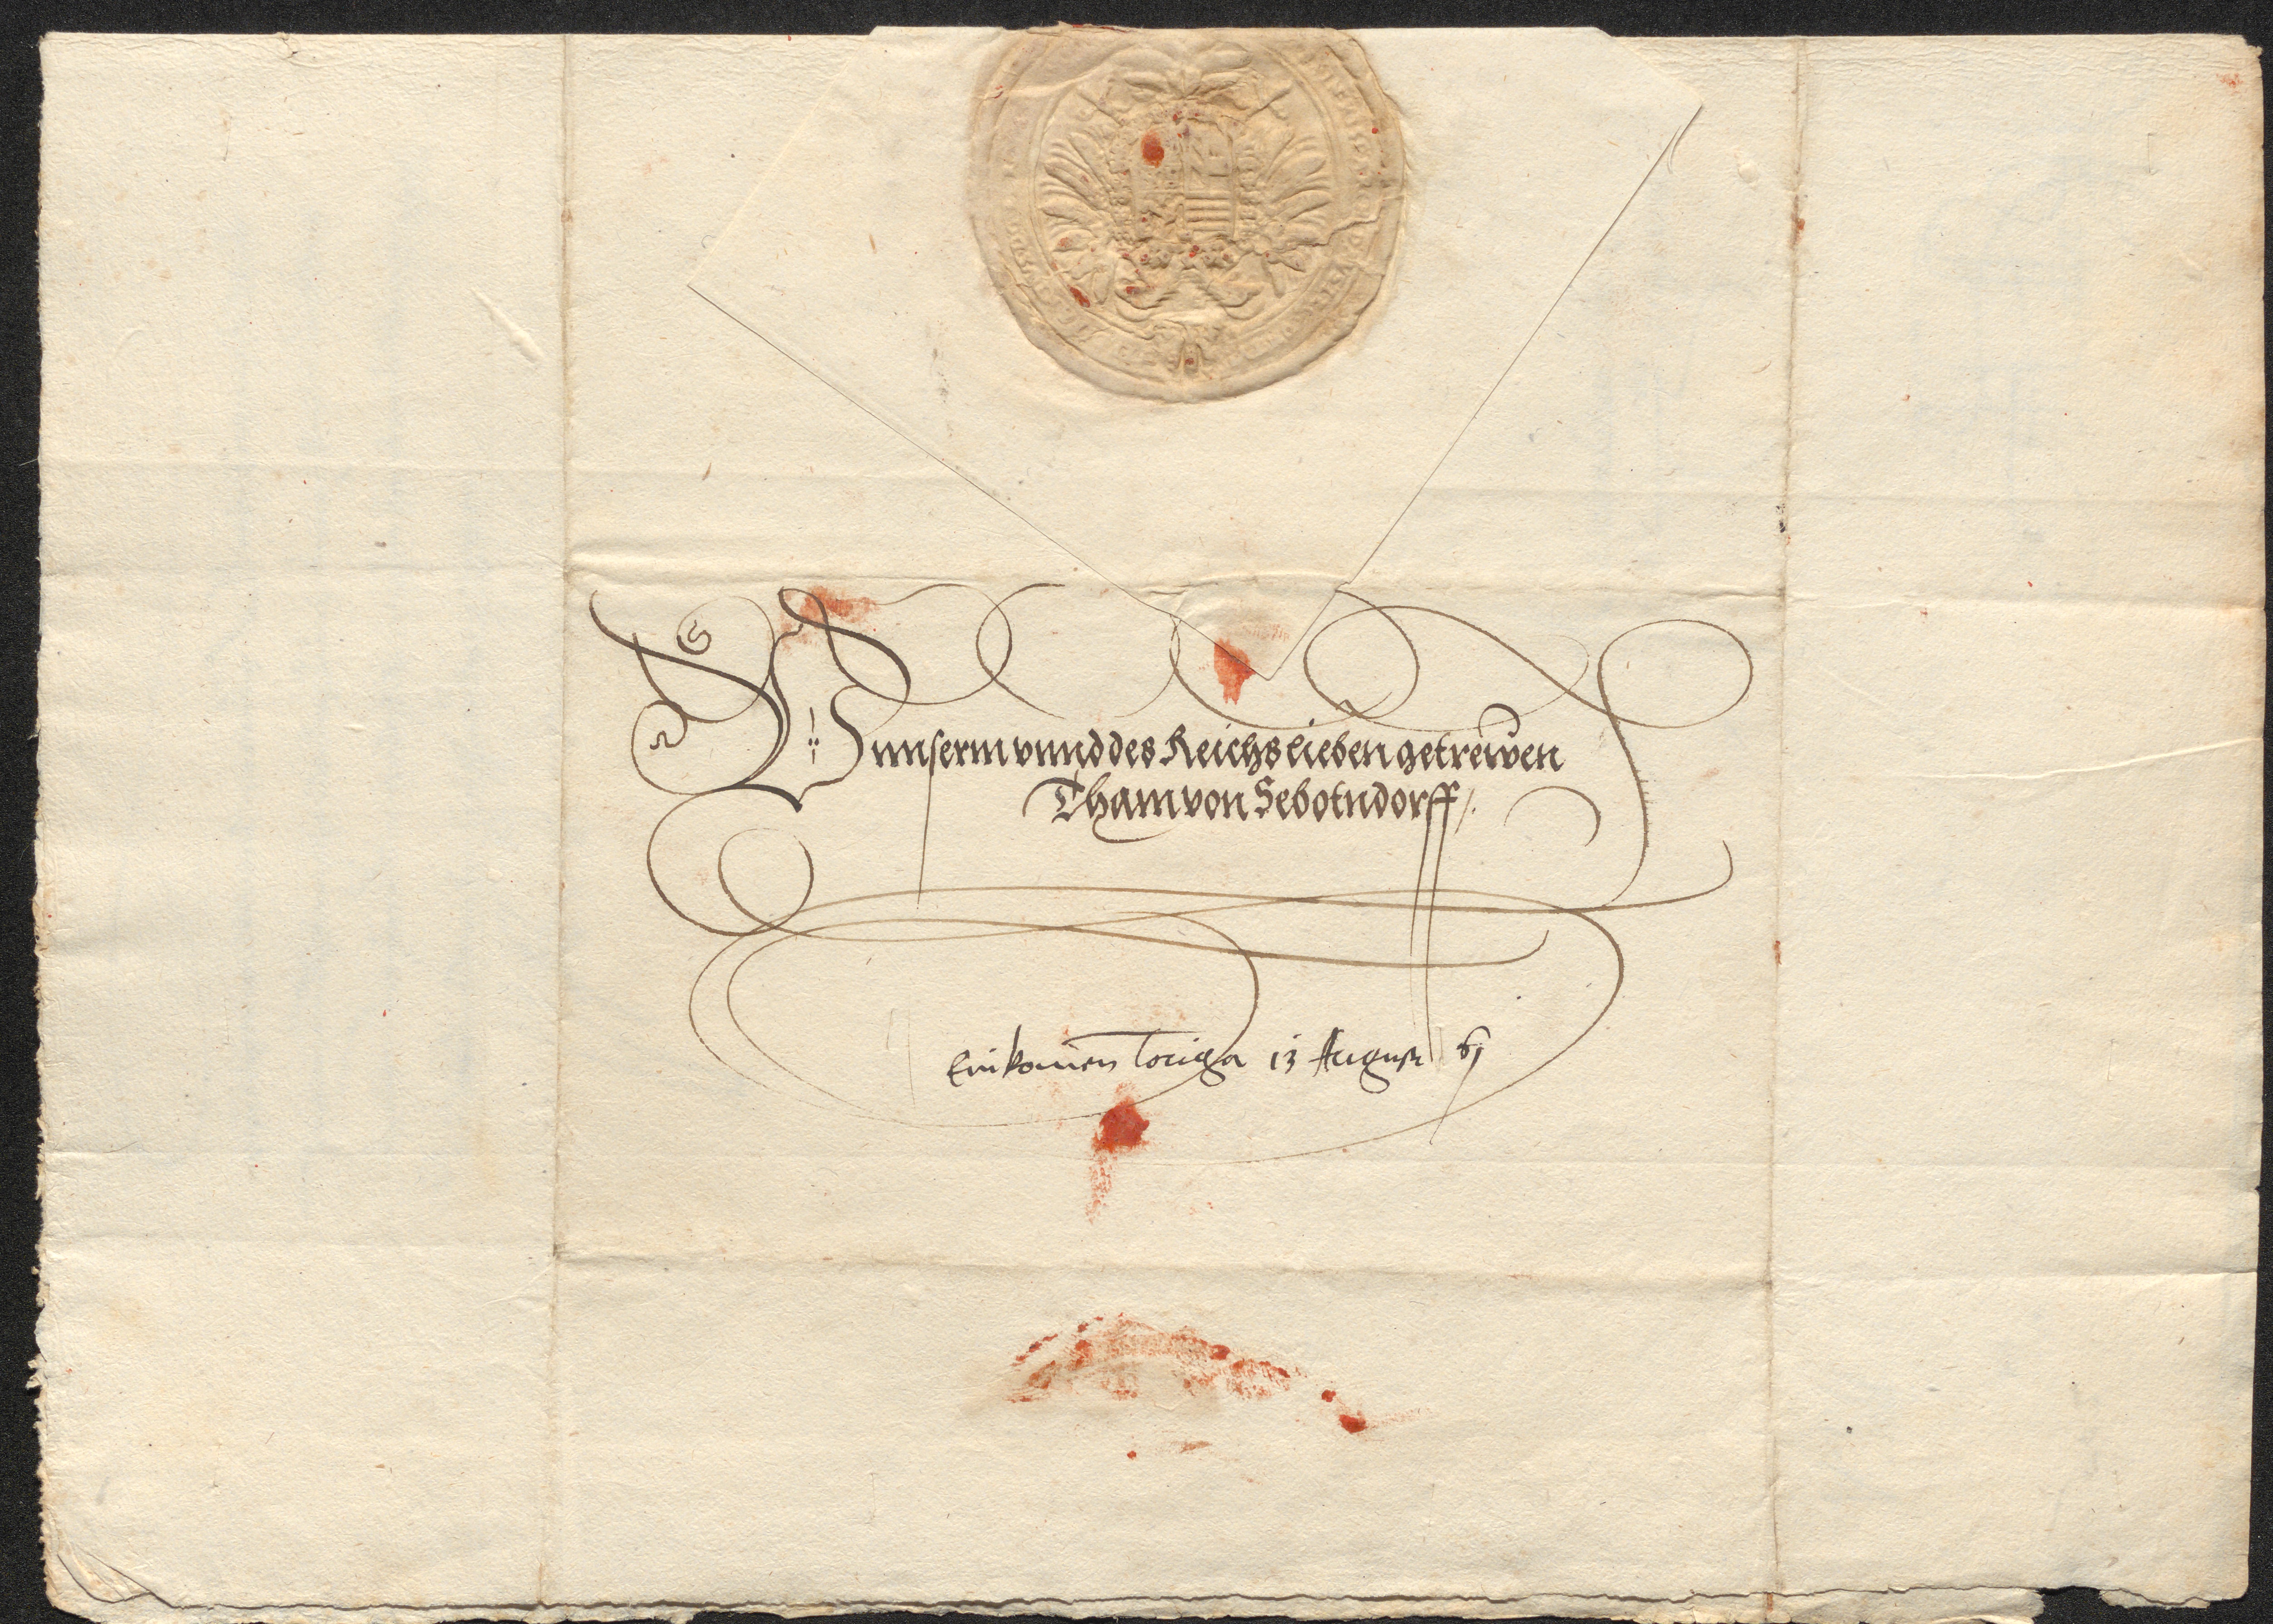 Vnnserm vnnd des Reichs lieben getreẃen
Tham von Sebotndorff /.
Einkomen Torga 13 August 61